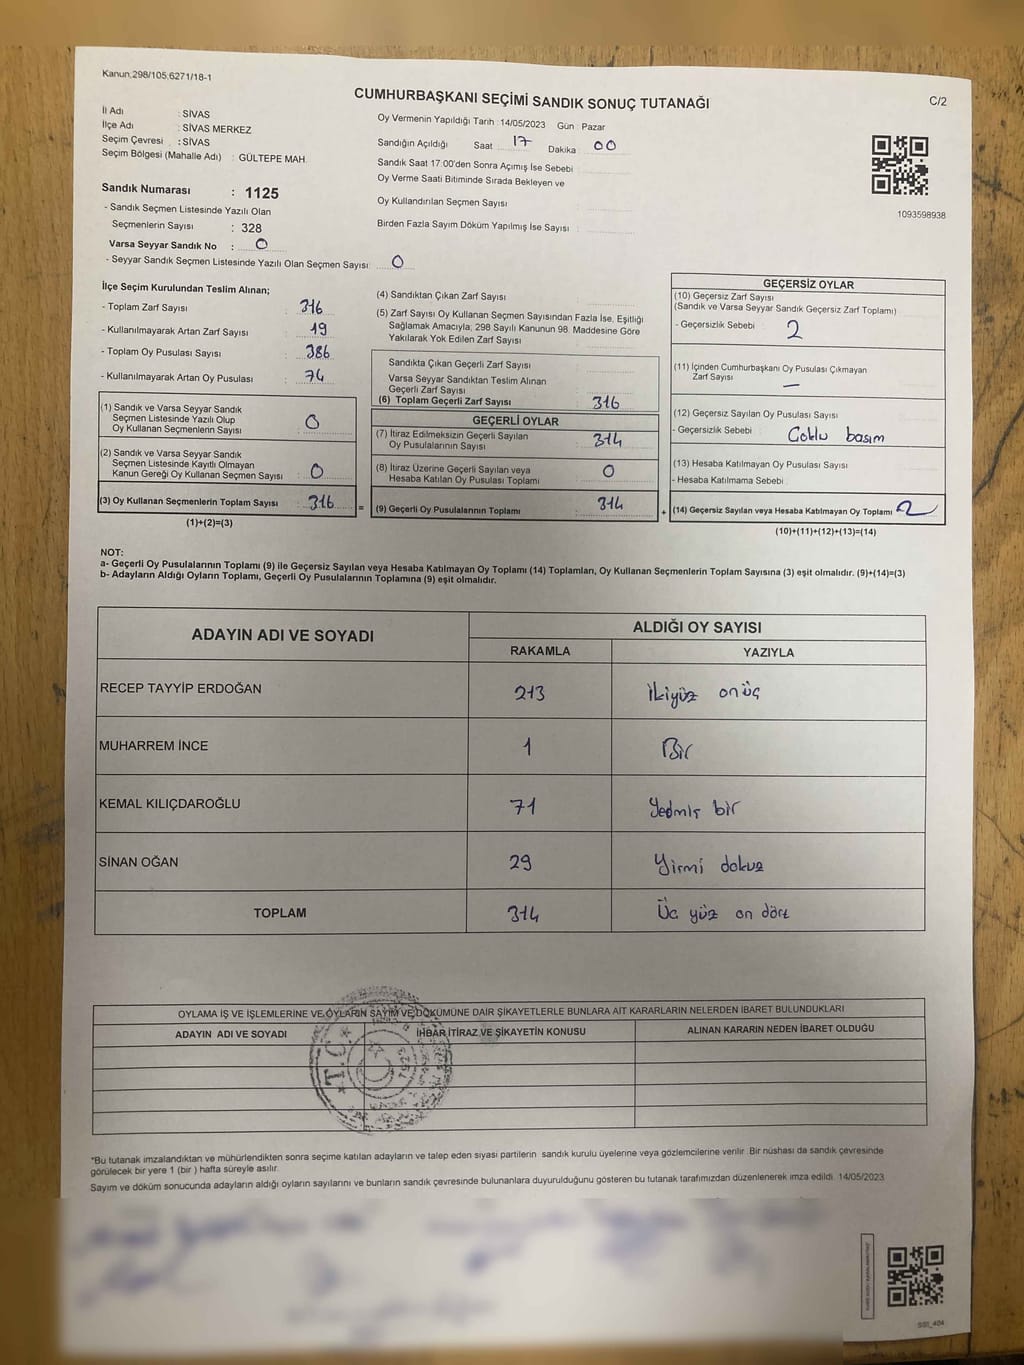 Kanun;298/105;6271/18-1
C/2
CUMHURBAŞKANI SEÇİMİ SANDIK SONUÇ TUTANAĞI
İl Adı : SİVAS
İlçe Adı : SİVAS MERKEZ
Seçim Çevresi : SİVAS
Seçim Bölgesi (Mahalle Adı) : GÜLTEPE MAH.
Sandık Numarası : 1125
- Sandık Seçmen Listesinde Yazılı Olan
Seçmenlerin Sayısı : 328
Varsa Seyyar Sandık No : 0
- Seyyar Sandık Seçmen Listesinde Yazılı Olan Seçmen Sayısı: 0
Oy Vermenin Yapıldığı Tarih : 14/05/2023 Gün : Pazar
Sandığın Açıldığı Saat 17 Dakika 00
Sandık Saat 17:00'den Sonra Açımış İse Sebebi
Oy Verme Saati Bitiminde Sırada Bekleyen ve
Oy Kullandırılan Seçmen Sayısı
Birden Fazla Sayım Döküm Yapılmış İse Sayısı :
1093598938
İlçe Seçim Kurulundan Teslim Alınan;
- Toplam Zarf Sayısı : 316
- Kullanılmayarak Artan Zarf Sayısı : 19
- Toplam Oy Pusulası Sayısı : 386
- Kullanılmayarak Artan Oy Pusulası : 74
(1) Sandık ve Varsa Seyyar Sandık
Seçmen Listesinde Yazılı Olup
Oy Kullanan Seçmenlerin Sayısı : 0
(2) Sandık ve Varsa Seyyar Sandık
Seçmen Listesinde Kayıtlı Olmayan
Kanun Gereği Oy Kullanan Seçmen Sayısı : 0
(3) Oy Kullanan Seçmenlerin Toplam Sayısı : 316
(1)+(2)=(3)
=
(4) Sandıktan Çıkan Zarf Sayısı
(5) Zarf Sayısı Oy Kullanan Seçmen Sayısından Fazla İse, Eşitliği
Sağlamak Amacıyla; 298 Sayılı Kanunun 98. Maddesine Göre
Yakılarak Yok Edilen Zarf Sayısı
Sandıkta Çıkan Geçerli Zarf Sayısı
Varsa Seyyar Sandıktan Teslim Alınan
Geçerli Zarf Sayısı
(6) Toplam Geçerli Zarf Sayısı 316
GEÇERLİ OYLAR
(7) İtiraz Edilmeksizin Geçerli Sayılan
Oy Pusulalarının Sayısı 314
(8) İtiraz Üzerine Geçerli Sayılan veya
Hesaba Katılan Oy Pusulası Toplamı 0
(9) Geçerli Oy Pusulalarının Toplamı 314
+
GEÇERSİZ OYLAR
(10) Geçersiz Zarf Sayısı
(Sandık ve Varsa Seyyar Sandık Geçersiz Zarf Toplamı)
- Geçersizlik Sebebi : 2
(11) İçinden Cumhurbaşkanı Oy Pusulası Çıkmayan
Zarf Sayısı —
(12) Geçersiz Sayılan Oy Pusulası Sayısı
- Geçersizlik Sebebi Çoklu basım
(13) Hesaba Katılmayan Oy Pusulası Sayısı
- Hesaba Katılmama Sebebi
(14) Geçersiz Sayılan veya Hesaba Katılmayan Oy Toplamı 2
(10)+(11)+(12)+(13)=(14)
NOT:
a- Geçerli Oy Pusulalarının Toplamı (9) ile Geçersiz Sayılan veya Hesaba Katılmayan Oy Toplamı (14) Toplamları, Oy Kullanan Seçmenlerin Toplam Sayısına (3) eşit olmalıdır. (9)+(14)=(3)
b- Adayların Aldığı Oyların Toplamı, Geçerli Oy Pusulalarının Toplamına (9) eşit olmalıdır.
ADAYIN ADI VE SOYADI
ALDIĞI OY SAYISI
RAKAMLA YAZIYLA
RECEP TAYYİP ERDOĞAN 213 ikiyüz onüç
MUHARREM İNCE 1 Bir
KEMAL KILIÇDAROĞLU 71 Yedmiş bir
SİNAN OĞAN 29 Yirmi dokuz
TOPLAM 314 Üç yüz on dört
OYLAMA İŞ VE İŞLEMLERİNE VE OYLARIN SAYIM VE DÖKÜMÜNE DAİR ŞİKAYETLERLE BUNLARA AİT KARARLARIN NELERDEN İBARET BULUNDUKLARI
ADAYIN ADI VE SOYADI İHBAR,İTİRAZ VE ŞİKAYETİN KONUSU ALINAN KARARIN NEDEN İBARET OLDUĞU
T.C.
*Bu tutanak imzalandıktan ve mühürlendikten sonra seçime katılan adayların ve talep eden siyasi partilerin sandık kurulu üyelerine veya gözlemcilerine verilir. Bir nüshası da sandık çevresinde
görülecek bir yere 1 (bir ) hafta süreyle asılır.
Sayım ve döküm sonucunda adayların aldığı oyların sayılarını ve bunların sandık çevresinde bulunanlara duyurulduğunu gösteren bu tutanak tarafımızdan düzenlenerek imza edildi. 14/05/2023
SSI_404